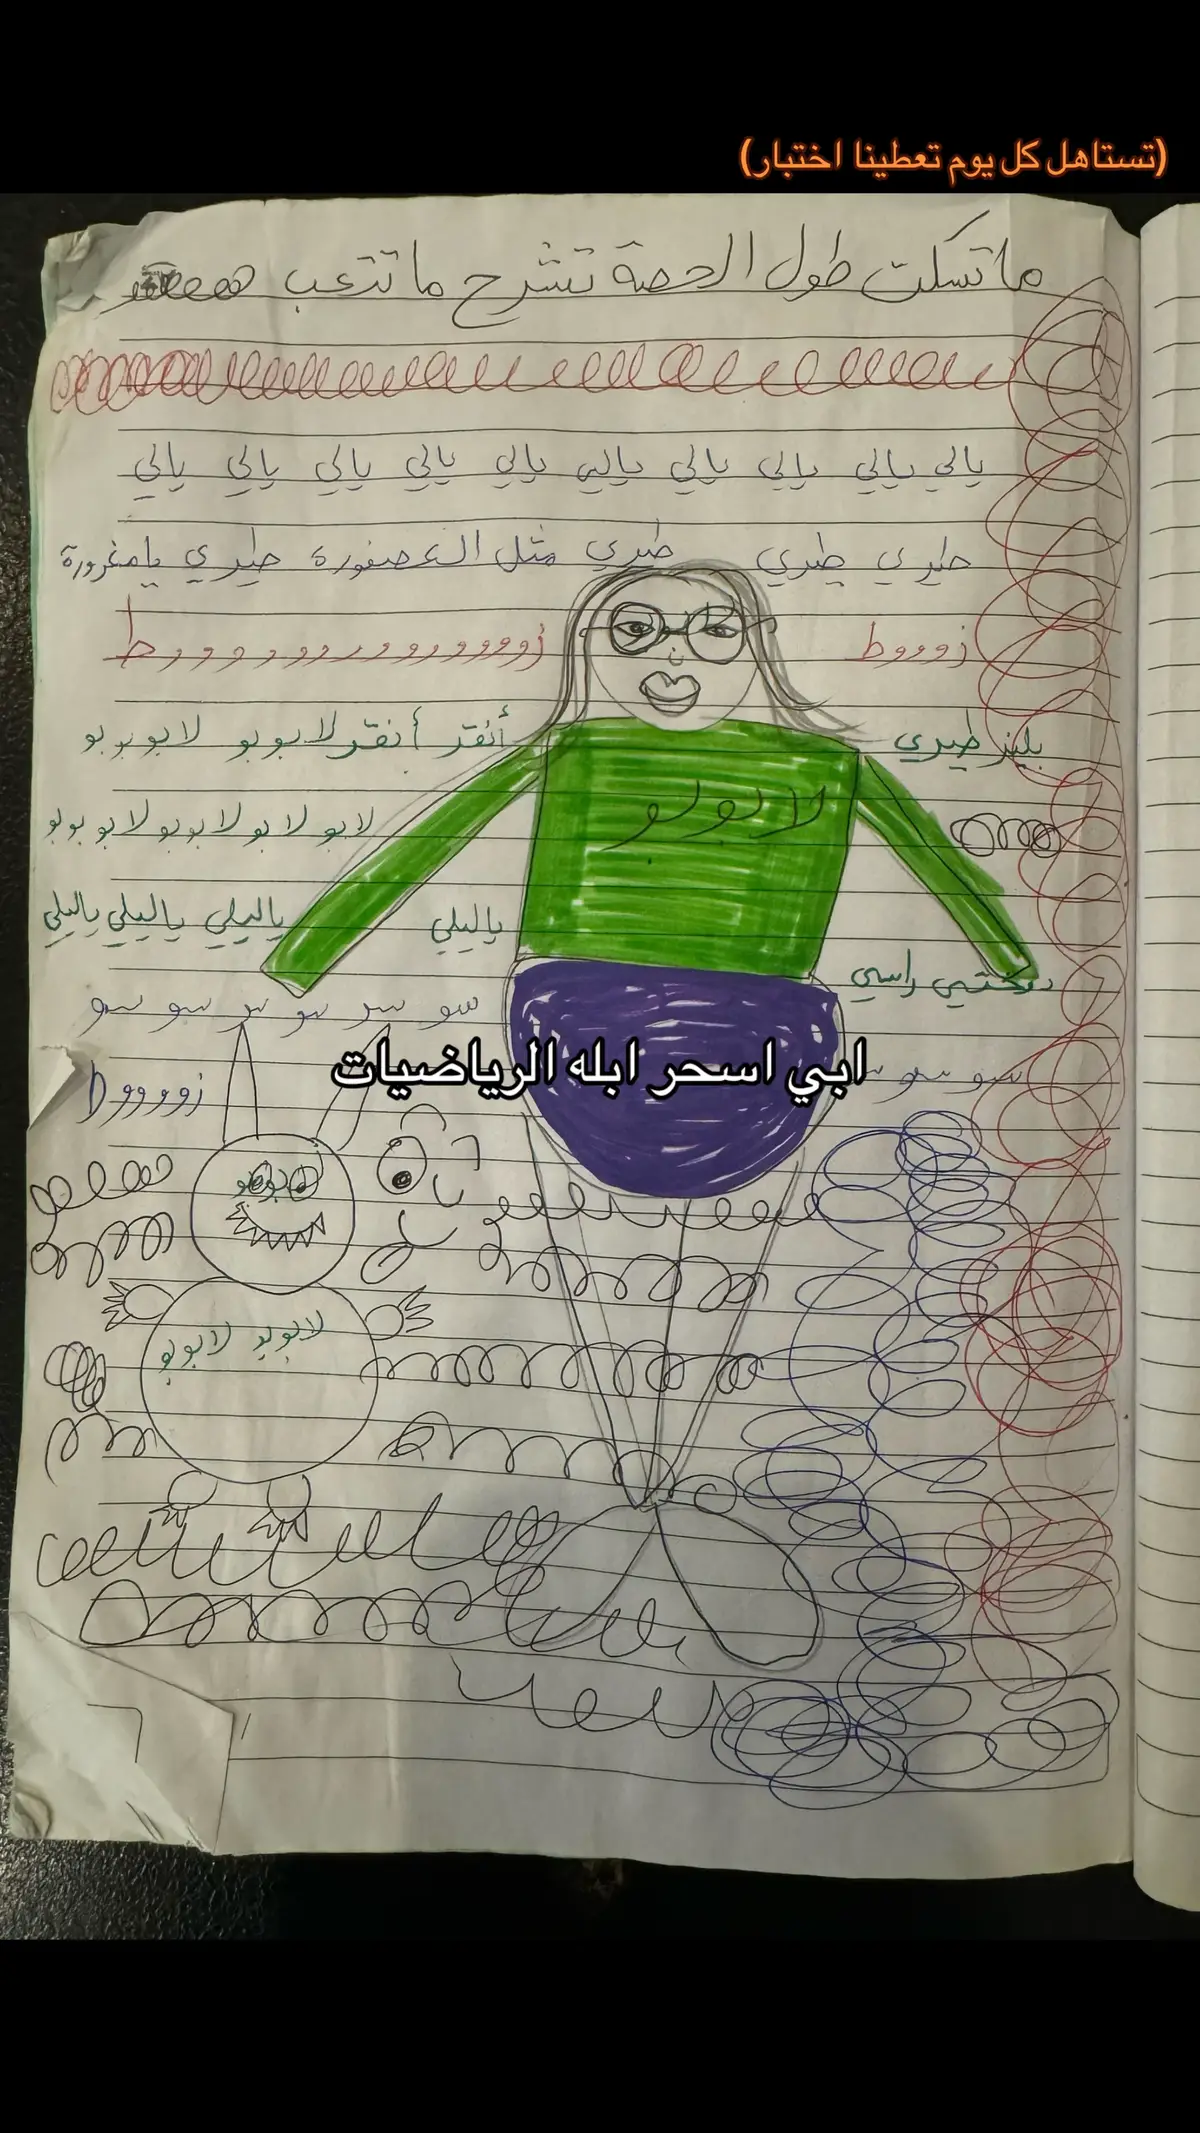 (تستاهل كل يوم تعطينا اختبار)
ماتسكت طول الحصة تشرح ماتتعب
يالي يالي يالي يالي يالي يالي يالي يالي يالي يالي
طيري طيري طيري مثل العصفورة طيري يامغرورة
زوووط زوووووووووووووط
بليز طيري أنقر أنقر لابوبو لابوبوبو
لابوبو
لابو لابو لابوبو لابوبوبو
ياليلي ياليلي ياليلي ياليلي
دختي راسي
سو سو سو سو سو سو
ابي اسحر ابله الرياضيات
سو سو سو
زووووط
لابوبو لابوبو